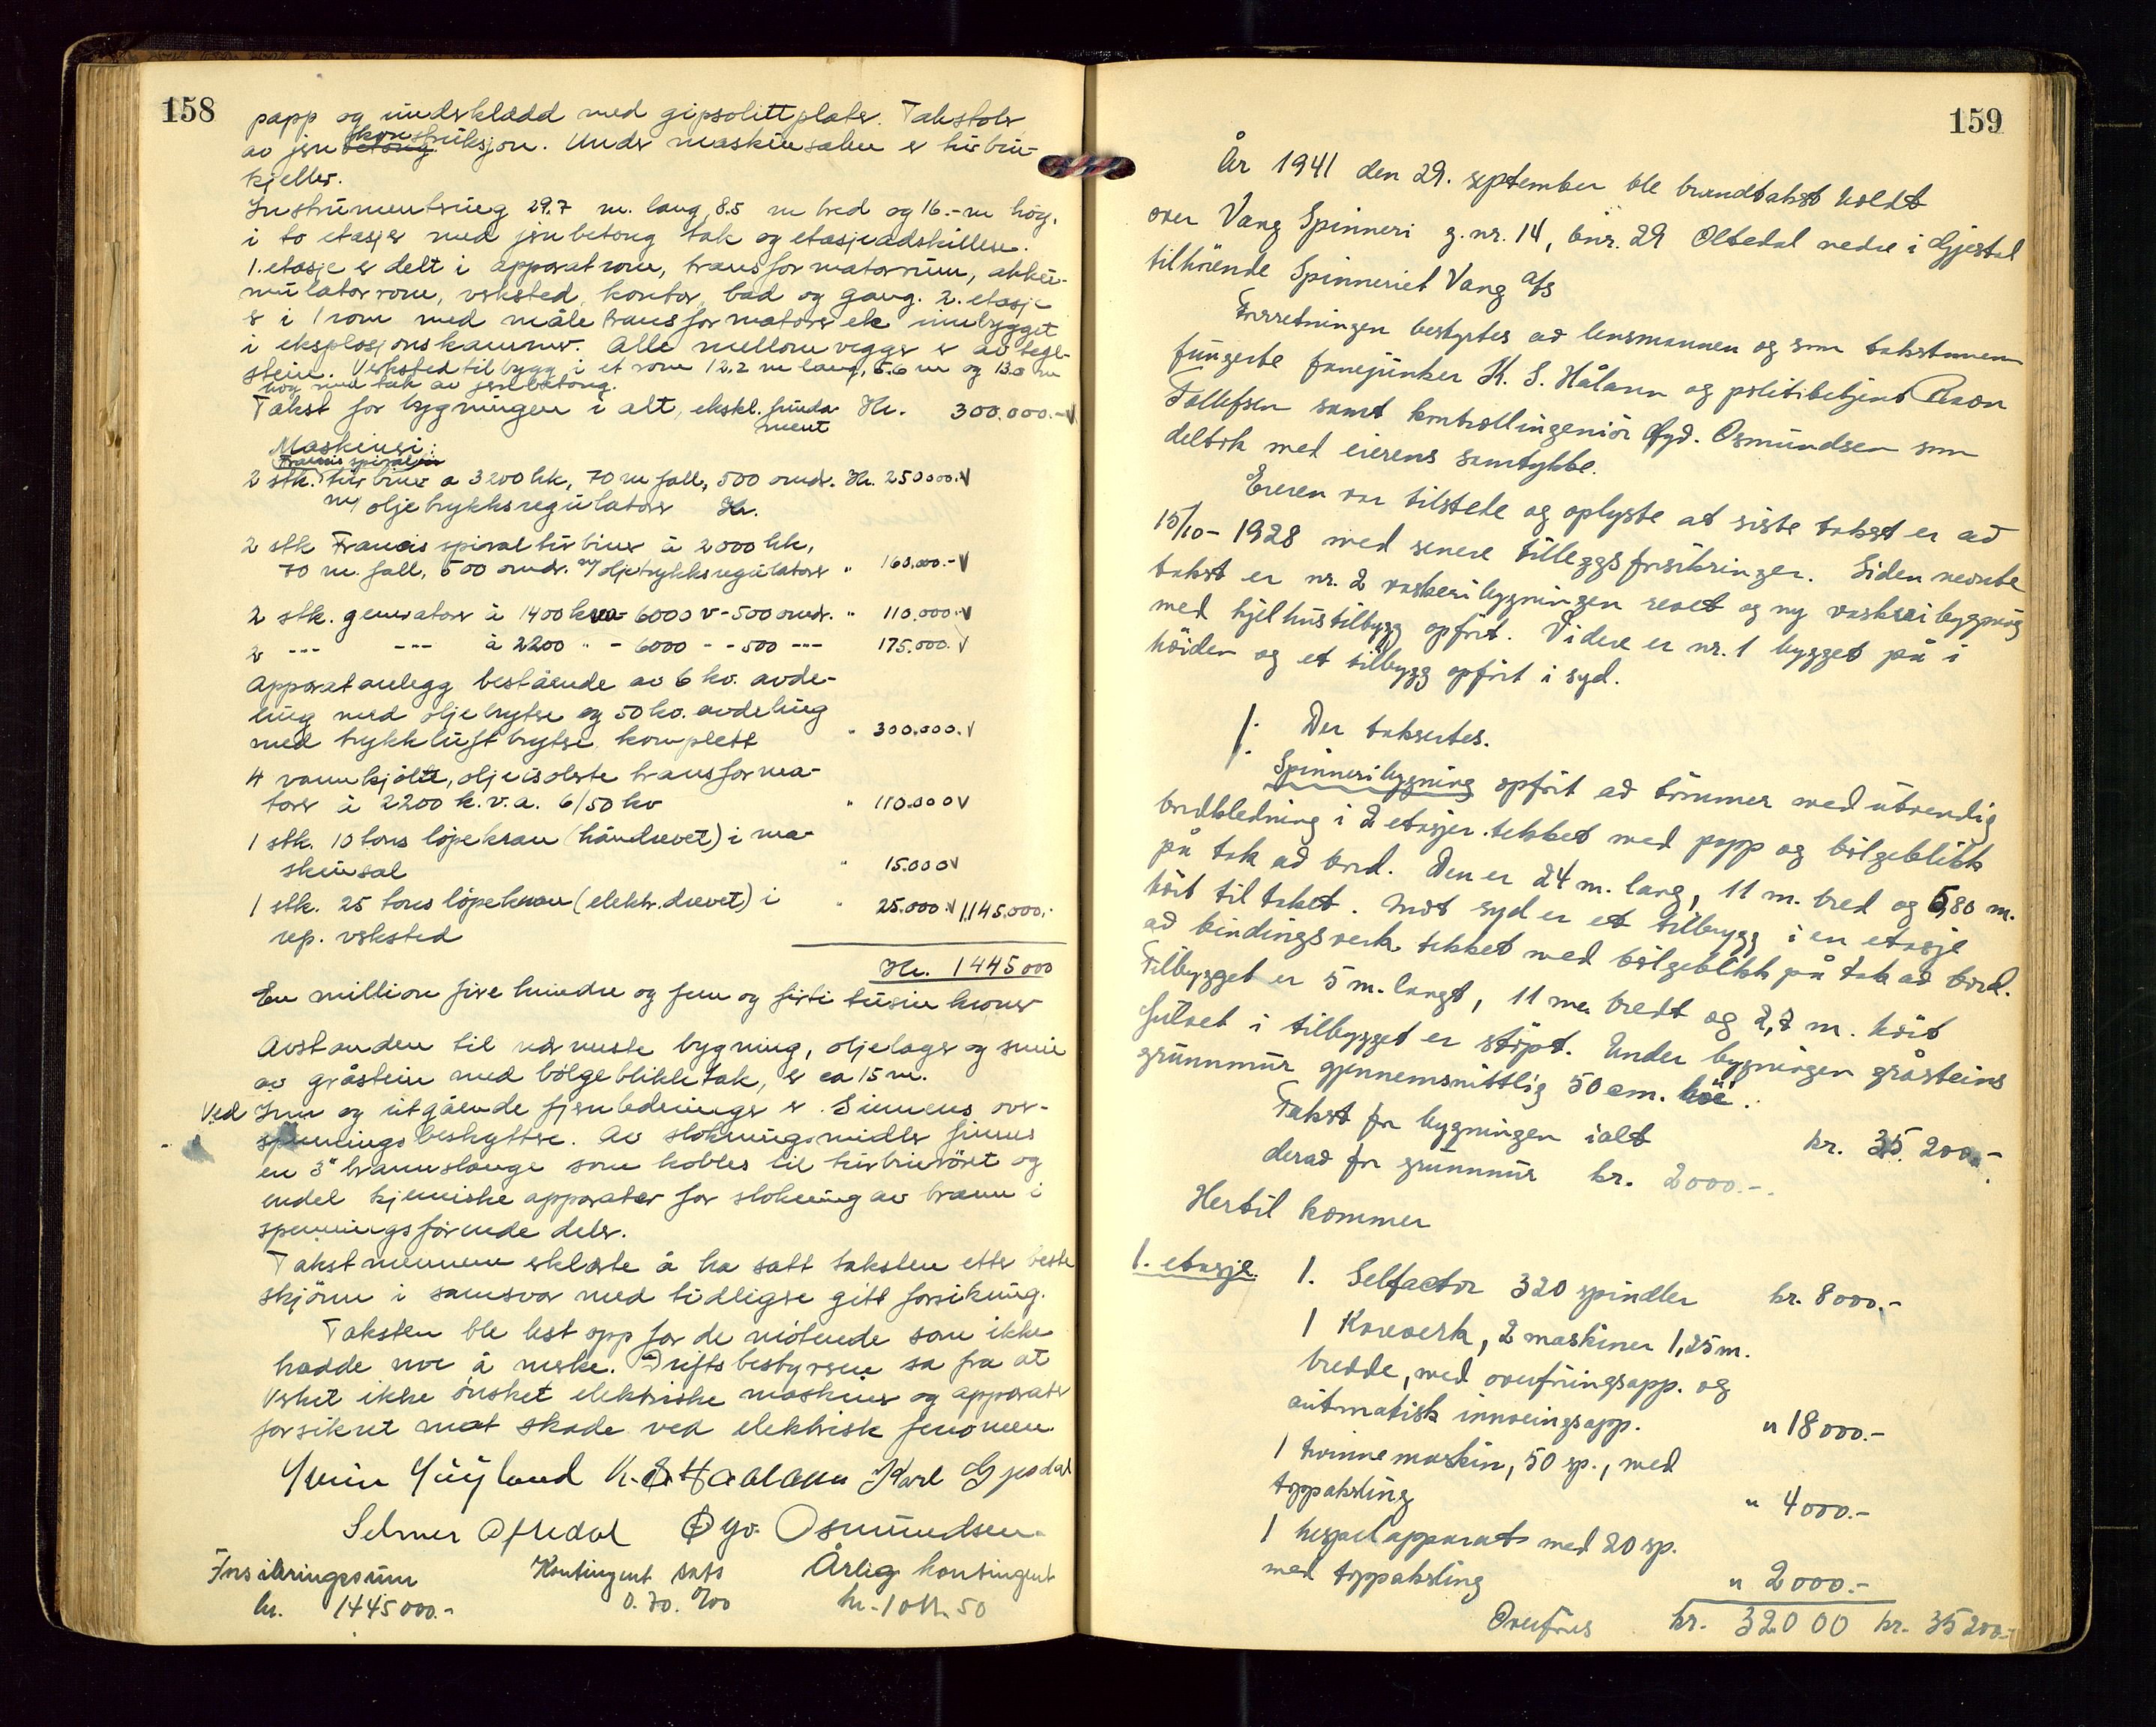 158
papp og underkledd med gipsolittplater. Takstoler
av jern betong konstruksjon. Under maskinsalen er turbin-
kjeller.
Instrumentering 29.7 m. lang, 8.5 m bred og 16.- m høg,
i to etasjer med jernbetong tak og etasjeadskillere.
1. etasje er delt i apparatrom, transformatorrum, akku-
mulatorrom, verksted, kontor, bad og gang. 2. etasje
er i 1 rom med måletransformatorer ele innbygget
i eksplosjonskammer. Alle mellomvegger er av tegl-
stein. Verkstedtilbygg i et rom 12.2 m lang, 5.6 m og 13.0 m
høg med tak av jernbetong.
Takst for bygningen i alt, ekskl. funda- Kr. 300.000.-
ment
Maskineri:
Francis spiral
2 stk. turbiner a 3200 hk, 70 m fall, 500 omdr. Kr. 250000.
m/ oljetrykksregulatorer Kr.
2 stk Francis spiralturbiner à 2000 hk,
70 m. fall, 500 omdr. m/ oljetrykksregulatorer " 160.000.-
2 stk. generatorer à 1400 kva - 6000 v - 500 omdr. " 110.000.
2 --- --- à 2200 " - 6000 - - 500 --- 175.000.
Apparatanlegg bestående av 6 kv. avde-
ling med oljebryter og 50 kv. avdeling
med trykkluftbryter, komplett " 300.000.
4 vannkjølte, oljeisolerte transforma-
torer à 2200 k.v.a. 6/50 kv " 110.000
1 stk. 10 tons løpekran (hånddrevet) i ma-
skinsal " 15.000
1 stk. 25 tons løpekran (elektr. drevet) i " 25.000 1.145.000.-
rep. verksted
Kr. 1445000
En million fire hundre og fem og førti tusin kroner
Avstanden til nærmeste bygning, oljelager og smie
av gråstein med bølgeblikktak, er ca 15 m.
Ved Inn og utgående fjernledninger er Siemens over-
spenningsbeskyttere. Av slokningsmidler finnes
en 3" brannslange som kobles til turbinrøret og
endel kjemiske apparater for slokning av brann i
spenningsførende deler.
Takstmennene erklærte å ha satt taksten etter beste
skjønn i samsvar med tidligere gitt forsikring.
Taksten ble lest opp for de møtende som ikke
hadde noe å merke. Driftsbestyreren sa fra at
Verket ikke ønsket elektriske maskiner og apparater
forsikret mot skade ved elektrisk fenomen.
K. S. Haaland Karl Gjesdal
Selmer Oftedal Øyv. Osmundsen
Forsikringssum Kontingent sats Årlig kontingent
kr. 1445000.- 0.70 ‰ kr. 1011.50
159
År 1941 den 29. september ble brandtakst holdt
over Vang Spinneri g.nr. 14, bnr. 29 Oltedal nedre i Gjestal
tilhørende Spinneriet Vang A/S
Forretningen bestyrtes av lensmannen og som takstmenn
fungerte fanejunker K. S. Håland og politibetjent
Tollefsen samt kontrollingeniør Øyv. Osmundsen som
deltok med eierens samtykke.
Eieren var tilstede og oplyste at siste takst er av
15/10-1928 med senere tilleggsforsikringer. Siden nevnte
takst er nr. 2 vaskeribygningen revet og ny vaskeribygning
med kjelhustilbygg opført. Videre er nr. 1 bygget på i
høiden og et tilbygg opført i syd.
Der takseres.
1. Spinneribygning opført av tømmer med utvendig
bordkledning i 2 etasjer tekket med papp og bølgeblikk
på tak av bord. Den er 24 m. lang, 11 m. bred og 5,80 m.
høit til taket. Mot syd er et tilbygg i en etasje
av bindingsverk tekket med bølgeblikk på tak av bord.
Tilbygget er 5 m. langt, 11 m. bredt og 2,7 m. høit
Gulvet i tilbygget er støpt. Under bygningen gråsteins
grunnmur gjennemsnittlig 50 cm. høi.
Takst for bygningen ialt kr. 35.200.-
derav for grunnmur kr. 2000.-.
Hertil kommer
1. etasje. 1. Selfactor 320 spindler kr. 8000.-
1 Kareverk, 2 maskiner 1,25 m.
bredde, med overføringsapp. og
automatisk innveiingsapp. " 18000.-
1 tvinnemaskin, 50 sp., med
toppaksling " 4000.-
1 hespelapparat med 20 sp.
med toppaksling " 2000.-
Overføres kr. 32000 kr. 35200.-